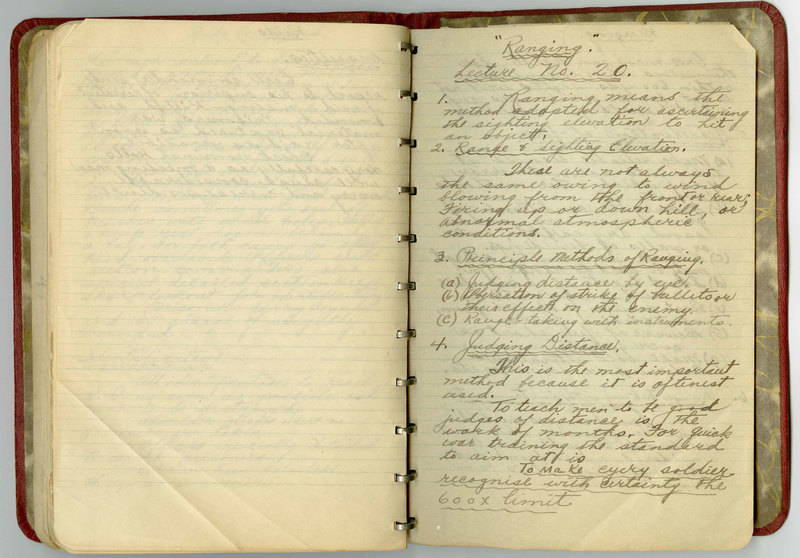 "Ranging".
Lecture No. 20.
1. Ranging means the
method adopted for ascertaining
the sighting elevation to hit
an object.
2. Range & Sighting Elevation.
These are not always
the same owing to wind
blowing from the front or rear;
Firing up or down hill, or
abnormal atmospheric
conditions.
3. Principle Methods of Ranging.
(a) Judging distance by eye
(b) of strike of bullets or
their effect on the enemy.
(c) Range-taking with instruments.
4. Judging Distance.
This is the most important
method because it is oftenest
used.
To teach men to be good
judges of distance is the
work of months. For quick
war training the standard
to aim at is
To Make every soldier
recognise with certainty the
600x limit